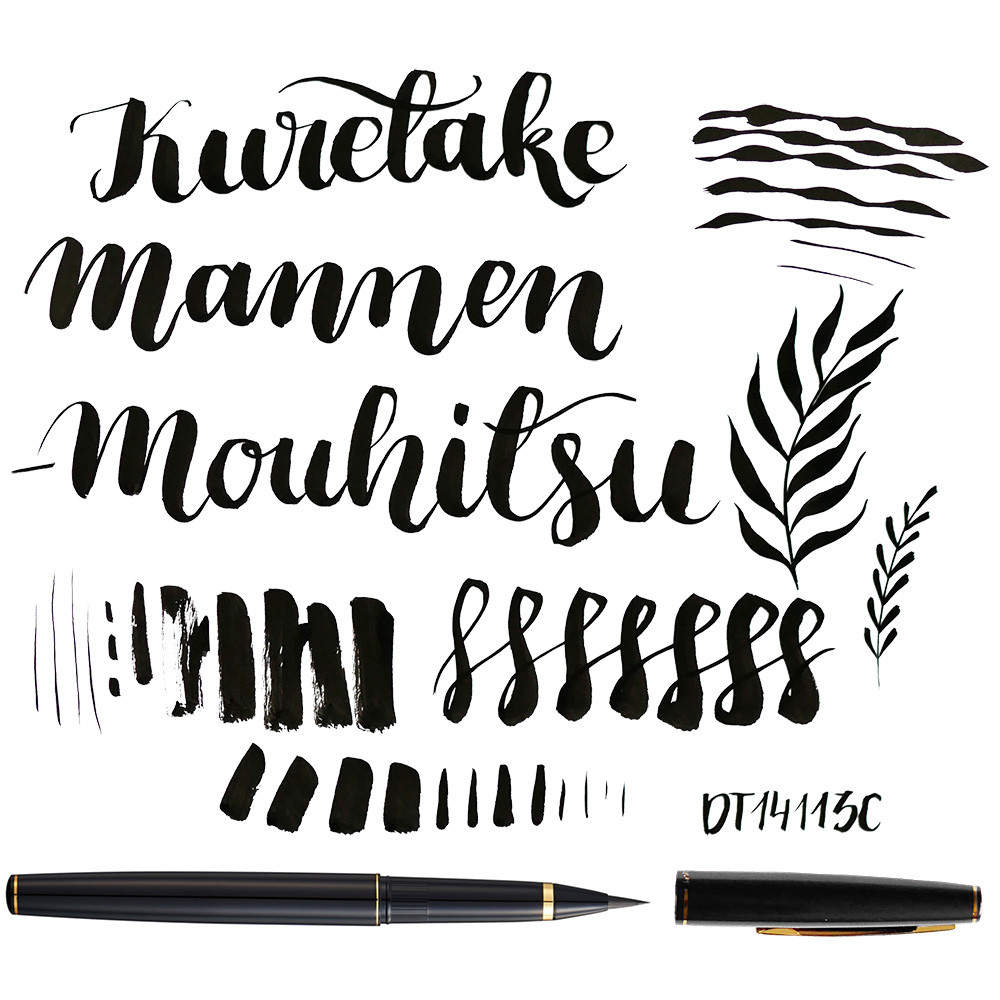 Kuretake
Mannen
Mouhitsu
DT14113C